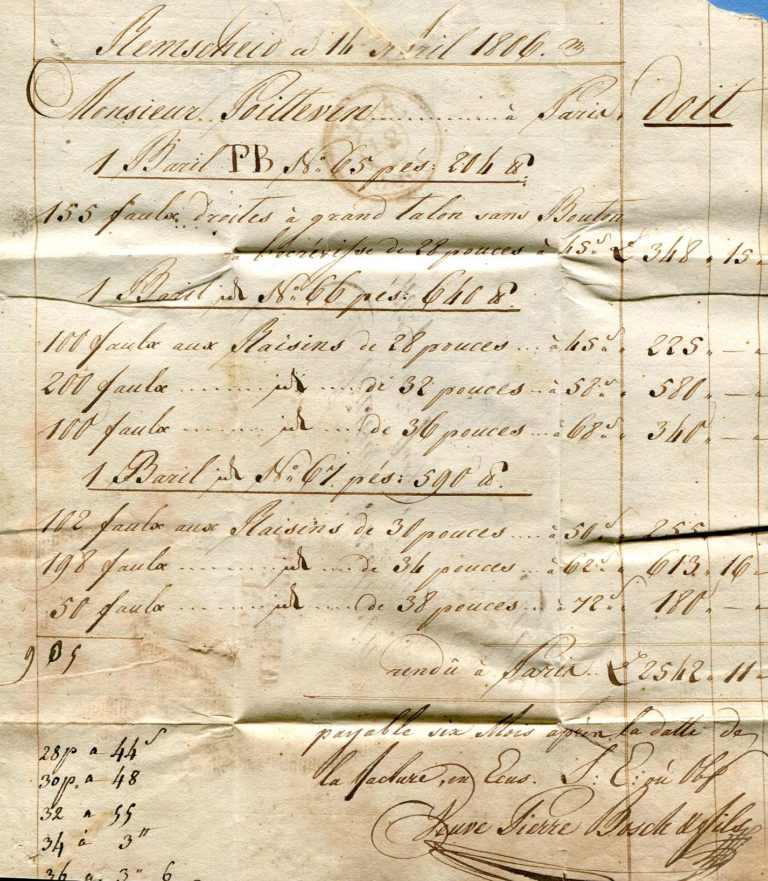 Remscheid a 14 Avril 1806.
Monsieur Poittevin à Paris. doit
1 Baril PB No. 65 pés: 204 ℔.
155 faulx droites à grand talon sans Bouton
à l'ecrévisse de 28 pouces à 45s. £ 348 " 15 "
1 Baril id No. 66 pés: 640 ℔.
100 faulx aux Raisins de 28 pouces à 45s. " 225 " — "
200 faulx id de 32 pouces à 58s. " 580 " — "
100 faulx id de 36 pouces à 68s. " 340 " — "
1 Baril id No. 67 pés: 590 ℔.
102 faulx aux Raisins de 30 pouces à 50s. " 255 " — "
198 faulx id de 34 pouces à 62s. " 613 " 16 "
50 faulx id de 38 pouces à 72s. " 180 " — "
905
rendû à Paris £ 2542 " 11 "
payable six Mois après la datte de
la facture, en Ecus. S. E.
Veuve Pierre Bosch & fils
28p a 44s
30p. a 48
32 a 55
34 à 3"
36 a 3" 6